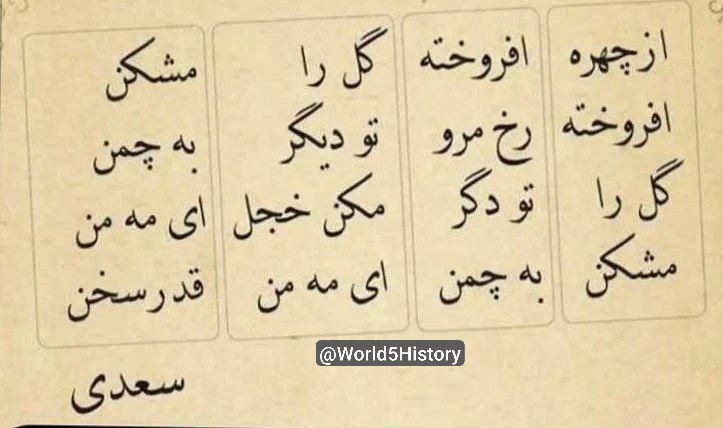 ازچهره افروخته گل را مشکن
افروخته رخ مرو تو دیگر به چمن
گل را تو دگر مکن خجل ای مه من
مشکن به چمن ای مه من قدرسخن
@World5History
سعدی